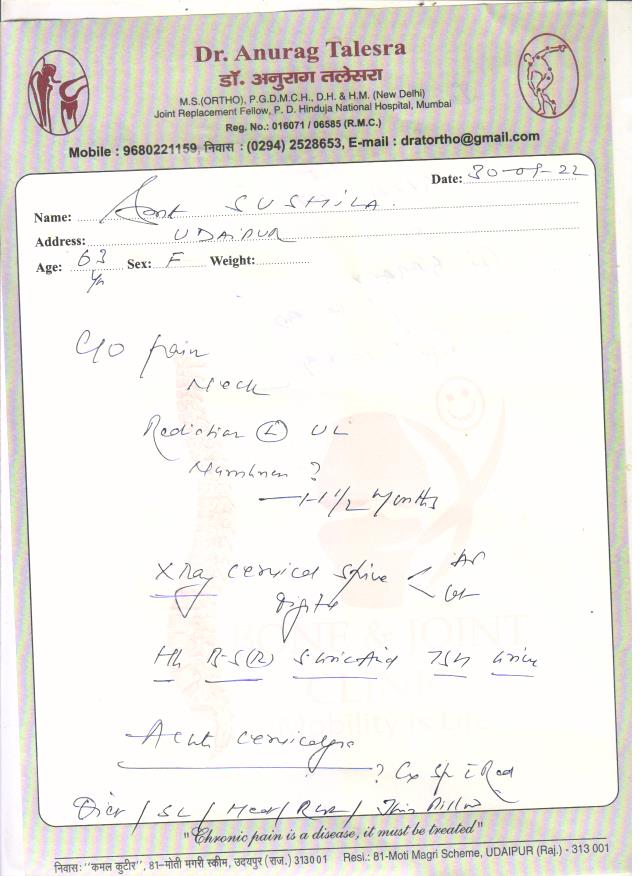 Dr. Anurag Talesra
डॉ. अनुराग तलेसरा
M.S.(ORTHO), P.G.D.M.C.H., D.H. & H.M. (New Delhi)
Joint Replacement Fellow, P. D. Hinduja National Hospital, Mumbai
Reg. No.: 016071 / 06585 (R.M.C.)
Mobile : 9680221159, निवास : (0294) 2528653, E-mail : dratortho@gmail.com
Date: 30-09-22
Name: SUSHILA
Address: UDAIPUR
Age: 63 Yr Sex: F Weight:
C/O pain
Neck
Radiation (L) UL
Numbness ?
1-1 1/2 Months
X Ray cervical spine < AP
Digital Lat
BONE & JOINT
CLINIC
Mobility is Life
Hb B-S(R) S Uric Acid TSH Urine
Acute cervicalgia
? Cx Sp
Diet / SL / Heat / / Thin Pillow
"Chronic pain is a disease, it must be treated"
निवास: "कमल कुटीर", 81-मोती मगरी स्कीम, उदयपुर (राज.) 313001 Resi.: 81-Moti Magri Scheme, UDAIPUR (Raj.) - 313 001